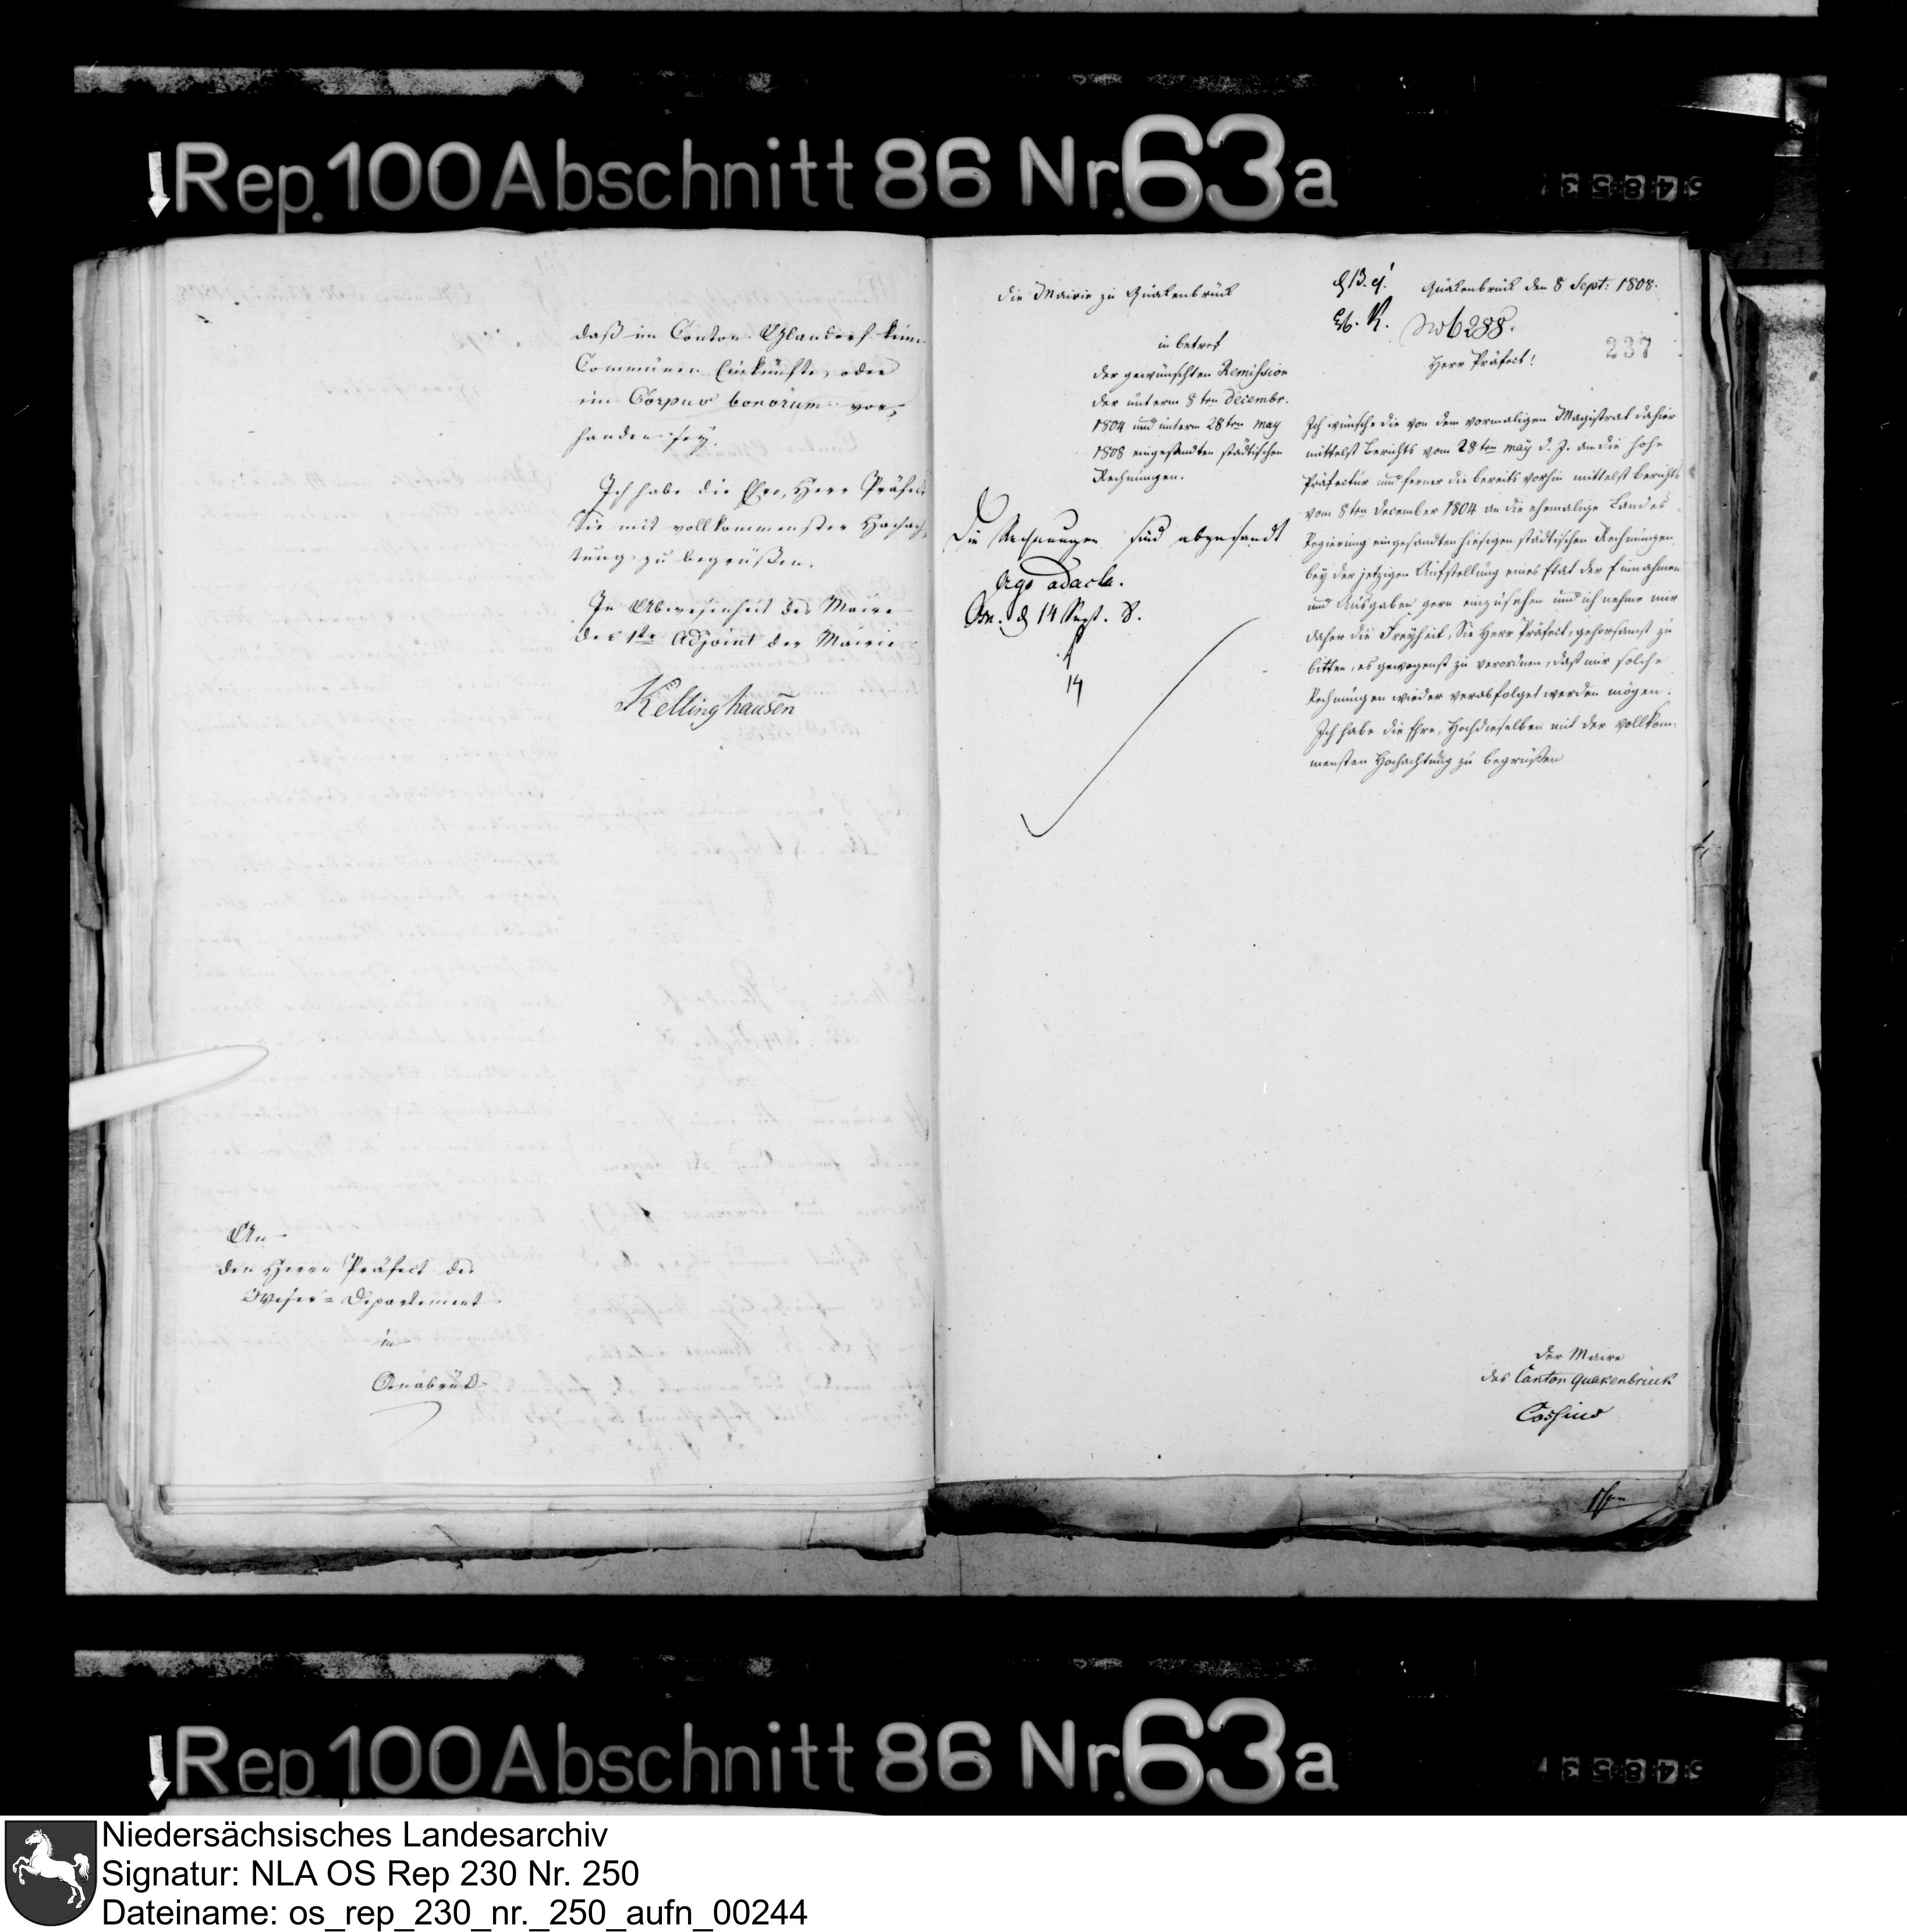 Rep. 100 Abschnitt 86 Nr. 63a
daß im Canton Glandorf keine
Communen Einkünfte, oder
ein Corpus bonorum vor-
handen sey.
Ich habe die Ehre, Herr Präfect
Sie mit vollkommenster Hochach-
tung zu begrüßen.
In Abwesenheit des Maire
der 1te Adjoint der Mairie
Kellinghausen
An
den Herrn Präfect des
Weser-Departement
in
Osnabrück
Die Mairie zu Quakenbrück
in betref
der gewünschten Remission
der unterm 8ten Decembr.
1804 und unterm 28ten May
1808 eingesandten städtischen
Rechnungen.
Die Rechnungen sind abgesandt
Ergo ad acta.
Osn. d 14 Sept. 8.
14
Quakenbrück den 8 Sept: 1808.
No 6288.
237
Herr Präfect!
Ich wünsche die von dem vormaligen Magistrat dahier
mittelst Berichts vom 28ten May d. J. an die hohe
Präfectur und ferner die bereits vorhin mittelst Berichts
vom 8ten December 1804 an die ehemalige Landes
Regierung eingesandten hiesigen städtischen Rechnungen,
bey der jetzigen Aufstellung eines Etat der Einnahmen
und Ausgaben gern einzusehen und ich nehme mir
daher die Freyheit, Sie Herr Präfect, gehorsamst zu
bitten, es gewogenst zu verordnen, daß mir solche
Rechnungen wieder verabfolget werden mögen.
Ich habe die Ehre, Hochdieselben mit der vollkom-
mensten Hochachtung zu begrüßen
Der Maire
des Canton Quakenbrück
Rep. 100 Abschnitt 86 Nr. 63a
Niedersächsisches Landesarchiv
Signatur: NLA OS Rep 230 Nr. 250
Dateiname: os_rep_230_nr._250_aufn_00244